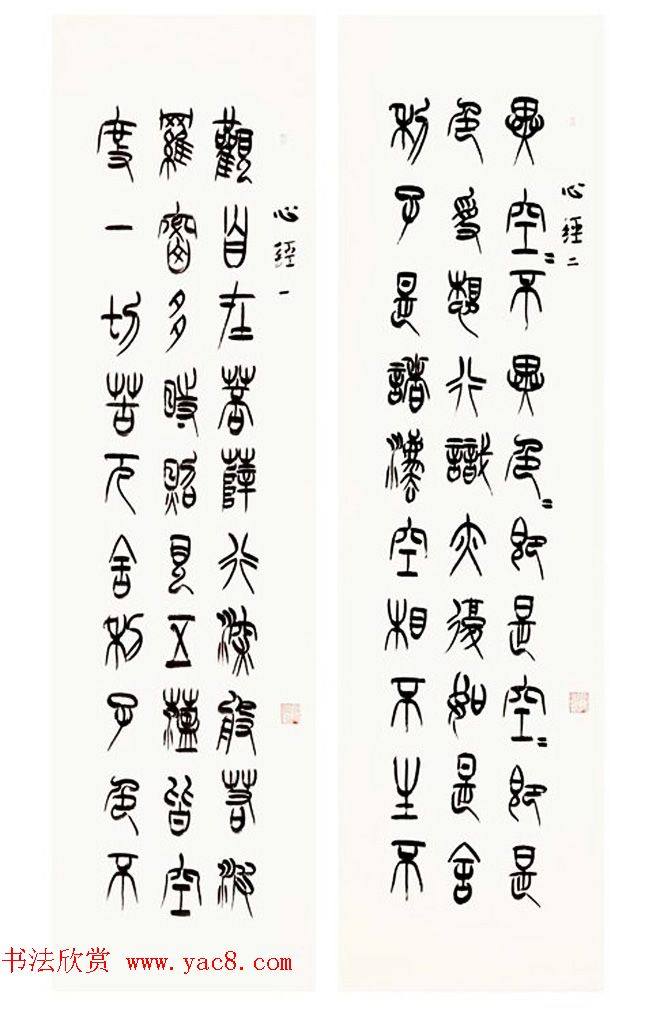 心經一
觀自在菩薩行深般若波
羅密多時照見五蘊皆空
度一切苦厄舍利子色不
心經二
異空〻不異色〻即是空〻即是
色受想行識亦復如是舍
利子是諸灋空相不生不
书法欣赏 www.yac8.com